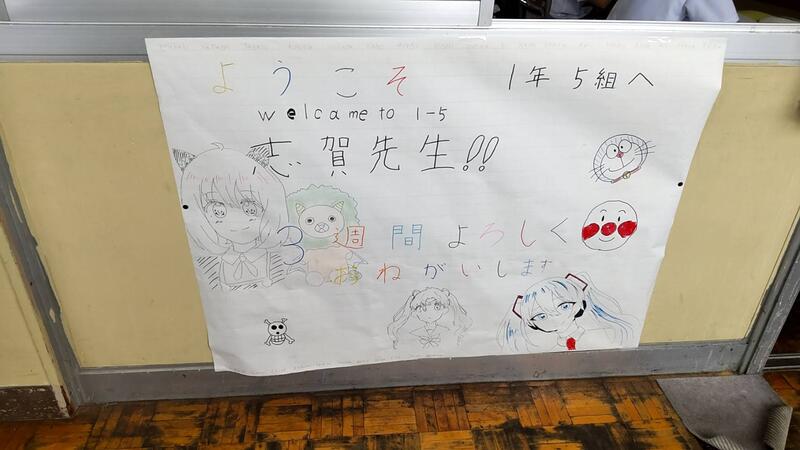 ようこそ 1年 5組へ
welcame to 1-5
志賀先生!!
3週間よろしく
お願ねがいします